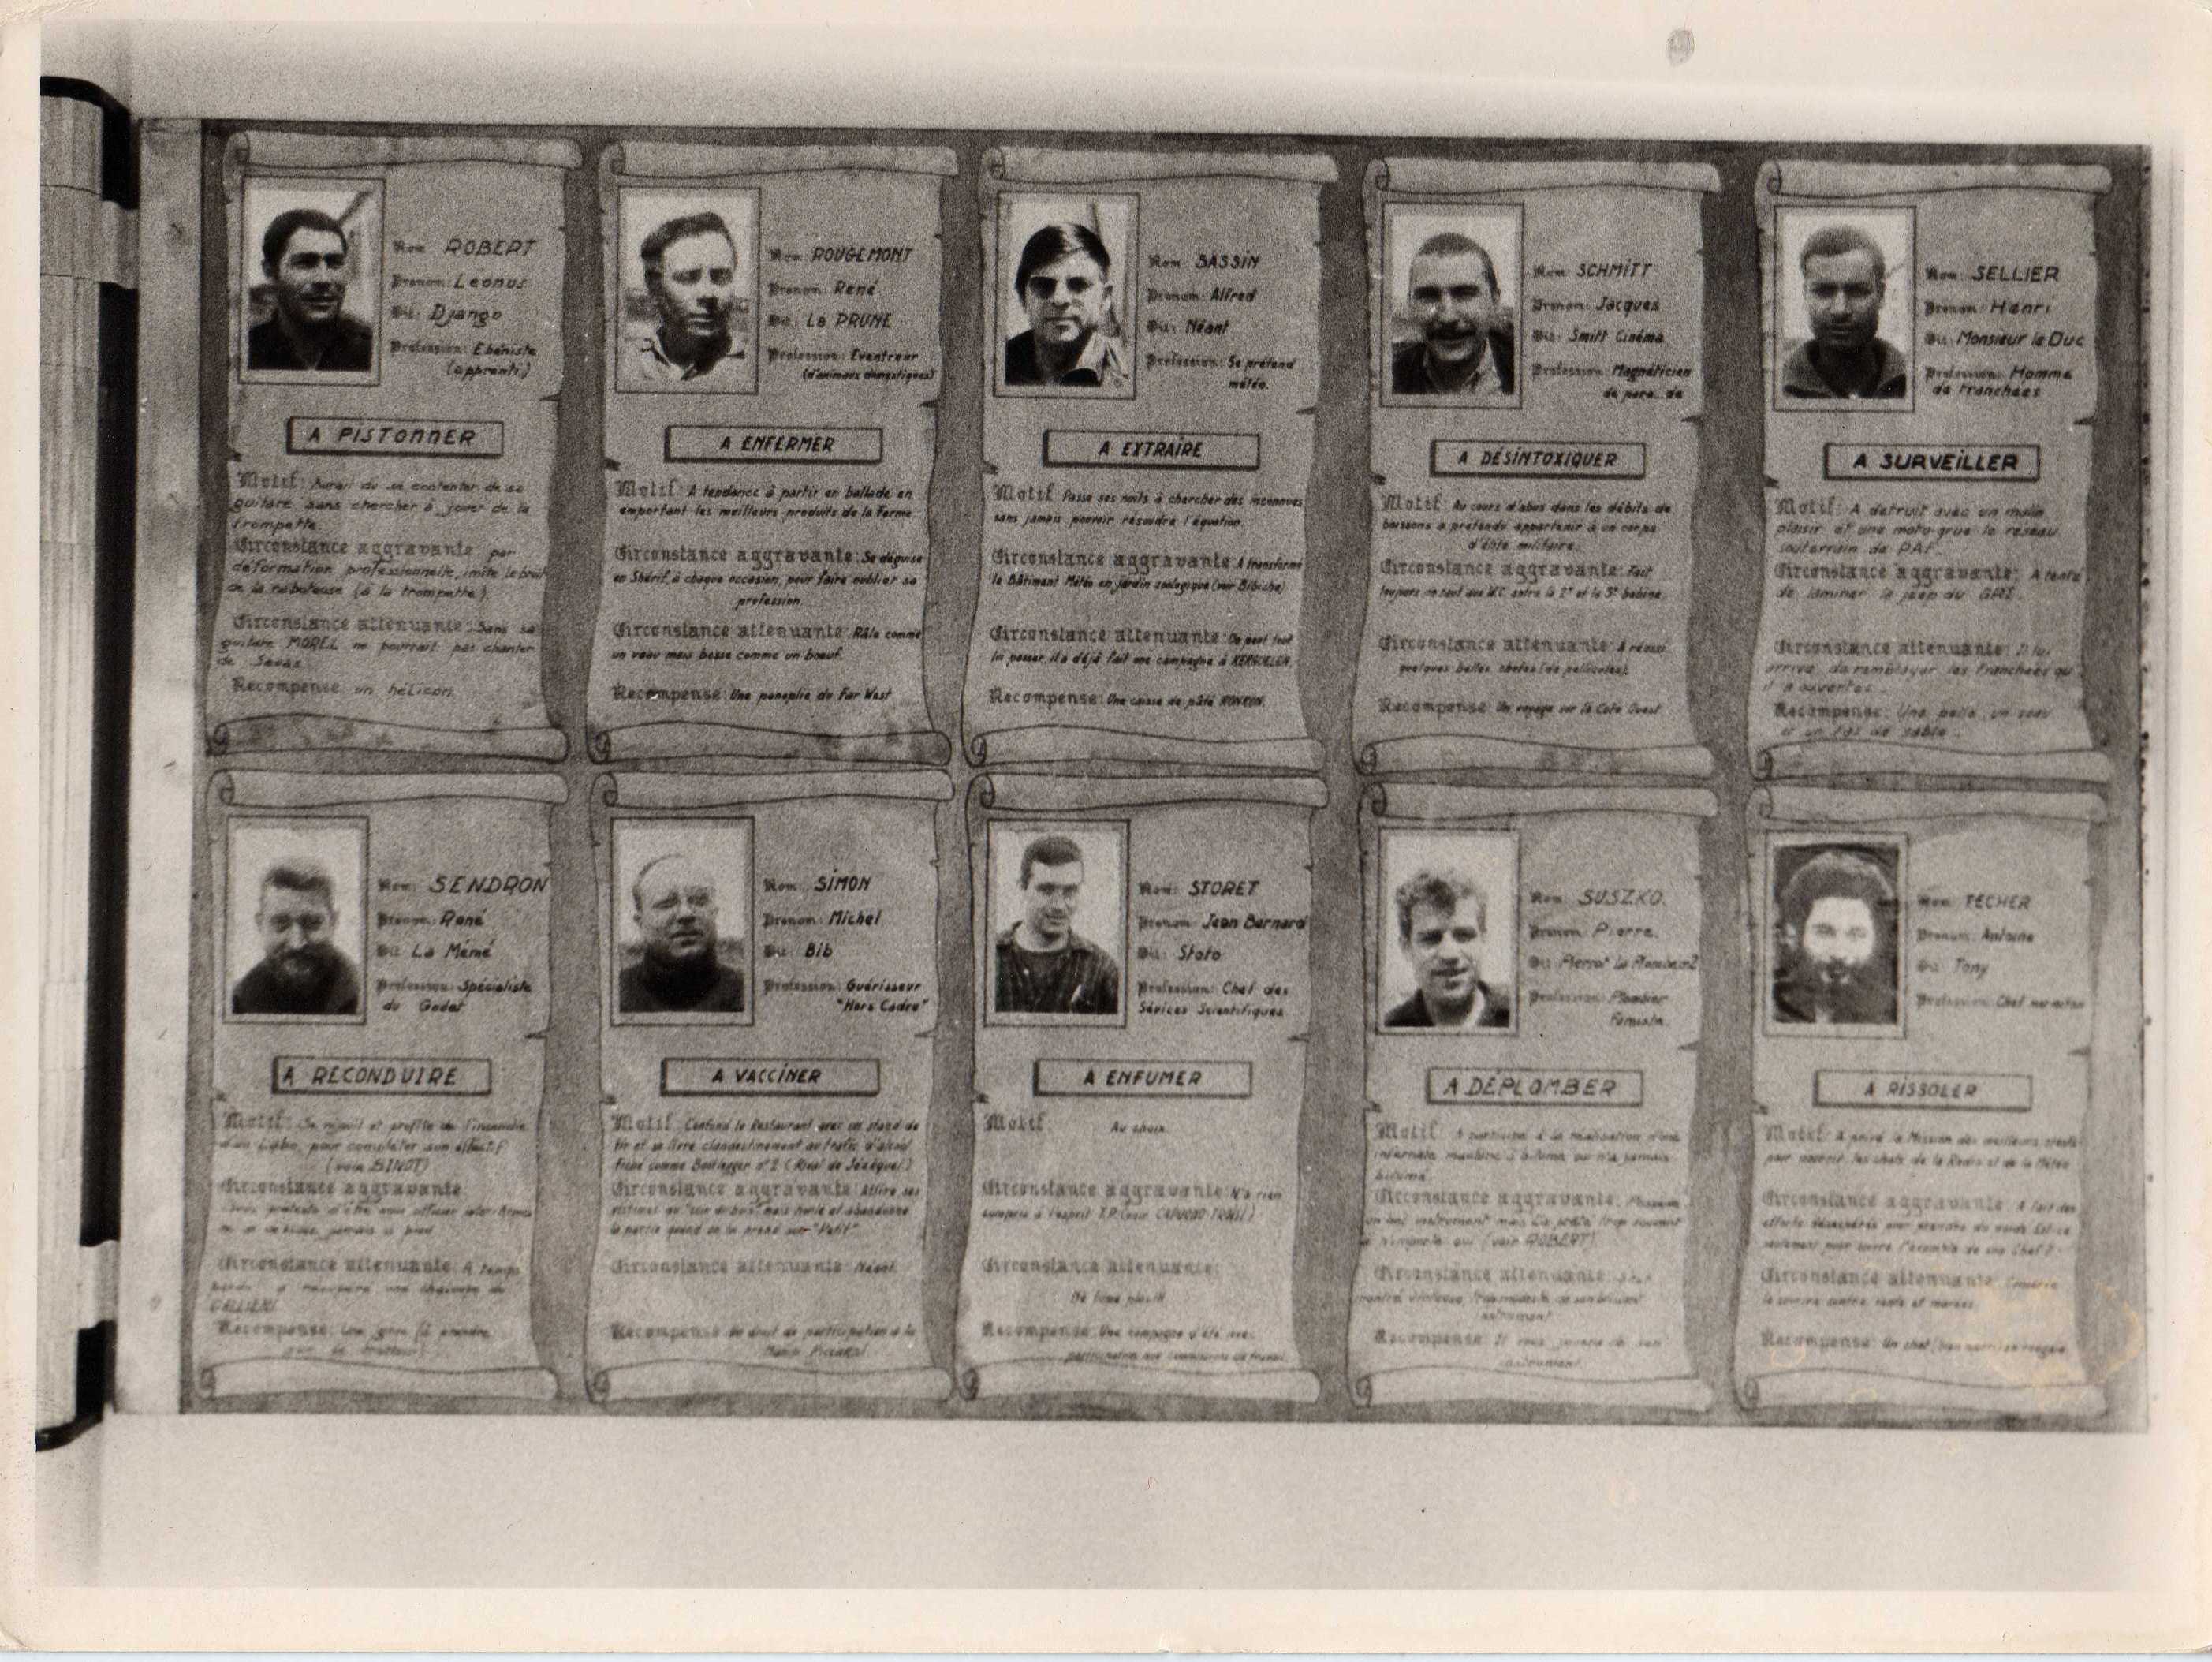 Nom: ROBERT
Prenom: Leonus
Dit: Django
Profession: Ebéniste
(apprenti)
A PISTONNER
Motif: Aurait du se contenter de sa
guitare sans chercher à jouer de la
trompette.
Circonstance aggravante: par
déformation professionnelle, imite le bruit
de la raboteuse (à la trompette).
Circonstance attenuante: Sans sa
guitare MOREL ne pourrait pas chanter
de
Recompense un hélicon.
Nom: ROUGEMONT
Prenom: René
Dit: La PRUNE
Profession: Eventreur
(d'animaux domestiques)
A ENFERMER
Motif: A tendance à partir en ballade en
emportant les meilleurs produits de la Ferme
Circonstance aggravante: Se déguise
en Shérif, à chaque occasion, pour faire oublier sa
profession
Circonstance attenuante: Râle comme
un veau mais bosse comme un bœuf.
Recompense: Une panoplie du Far West
Nom: SASSIN
Prenom: Alfred
Dit: Néant
Profession: Se prétend
météo.
A EXTRAIRE
Motif Passe ses nuits à chercher des inconnues
sans jamais pouvoir résoudre l'équation.
Circonstance aggravante: A transformé
le Bâtiment Météo en jardin zoologique (voir Bibiche)
Circonstance attenuante: On peut tout
lui passer, il a déjà fait une campagne à KERGUELEN.
Recompense: Une caisse de pâté RONRON.
Nom: SCHMITT
Prenom: Jacques
Dit: Smitt Cinéma
Profession: Magnéticien
de para...de
A DÉSINTOXIQUER
Motif: Au cours d'abus dans les débits de
boissons a prétendu appartenir à un corps
d'élite militaire.
Circonstance aggravante: Fait
toujours un saut aux W.C. entre la 2e et la 3e bobine.
Circonstance attenuante: A réussi
quelques belles chutes (de pellicules).
Recompense: Un voyage sur la Cote Ouest
Nom: SELLIER
Prenom: Henri
Dit: Monsieur le Duc
Profession: Homme
de tranchées
A SURVEILLER
Motif: A detruit avec un malin
plaisir et une moto-grue le réseau
souterrain de PAF.
Circonstance aggravante: A tenté
de laminer la jeep du
Circonstance attenuante: Il lui
arrive de remblayer les tranchées qu'
il a ouvertes.
Recompense: Une pelle, un seau
et un tas de sable.
Nom: SENDRON
Prenom: René
Dit: La Mémé
Profession: Spécialiste
du Godet
A RECONDUIRE
Motif: Se réjouit et profite de l'incendie
d'un Labo, pour compléter son effectif
(voir BINOT)
Circonstance aggravante
Circonstance attenuante: A temps
perdu a récupéré une
SELLIER
Recompense: Une
Nom: SIMON
Prenom: Michel
Dit: Bib
Profession: Guérisseur
"Hors Cadre"
A VACCINER
Motif: Confond le Restaurant avec un stand de
tir et se livre clandestinement au trafic d'alcool
fiché comme Bootlegger n°2 (Rival de Sénéquel)
Circonstance aggravante: Attire ses
victimes au mais hurle et abandonne
la partie quand on lui prend son "Petit".
Circonstance attenuante: Néant
Recompense Un droit de participation à la
Nom: STORET
Prenom: Jean Bernard
Dit: Stoto
Profession: Chef des
Sévices Scientifiques
A ENFUMER
Motif: Au choix.
Circonstance aggravante: N'a rien
compris à l'esprit T.P.
Circonstance attenuante:
Ne fume plus
Recompense: Une campagne d'été avec
participation aux
Nom: SUSZKO.
Prenom: Pierre.
Dit: Pierrot Le Plombeur
Profession: Plombier
Fumiste.
A DÉPLOMBER
Motif: A participé à la réalisation d'une
infernale machine à bitume qui n'a jamais
bitumé
Circonstance aggravante. Possède
un bel instrument mais l'a prêté trop souvent
à n'importe qui (voir ROBERT)
Circonstance attenuante:
instrument
Recompense: Il nous jouera de son
instrument
Nom: TECHER
Prenom: Antoine
Dit: Tony
Profession: Chef
A RISSOLER
Motif: A privé la Mission des meilleurs
pour nourrir les chats de la Radio et de la Météo
Circonstance aggravante: A fait des
efforts désespérés pour prendre du poids. Est-ce
seulement pour suivre l'exemple de son Chef?
Circonstance attenuante: Conserve
le sourire contre vents et marées.
Recompense: Un chat (bien nourri) en